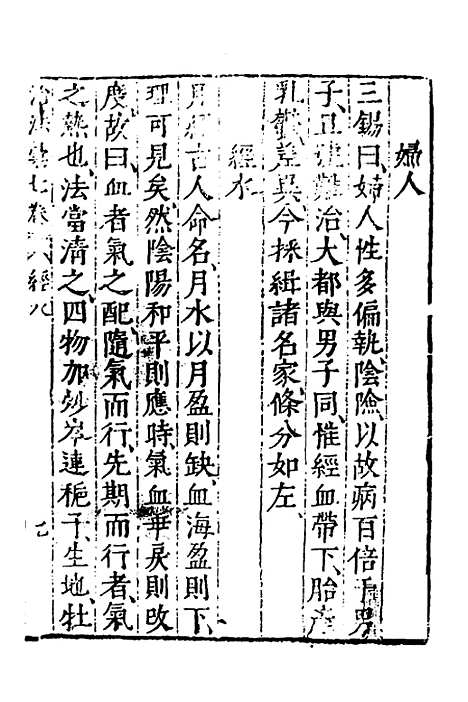 婦人
三錫曰婦人性多偏執陰險以故病百倍于男
子且難治大都與男子同惟經血帶下胎產
乳㿈差異今採緝諸名家條分如左
經水
月經古人命名月水以月盈則缺血海盈則下
理可見矣然陰陽和平則應時氣血乖戾則改
度故曰血者氣之配隨氣而行先期而行者氣
之熱也法當清之四物加炒芩連梔子生地牡